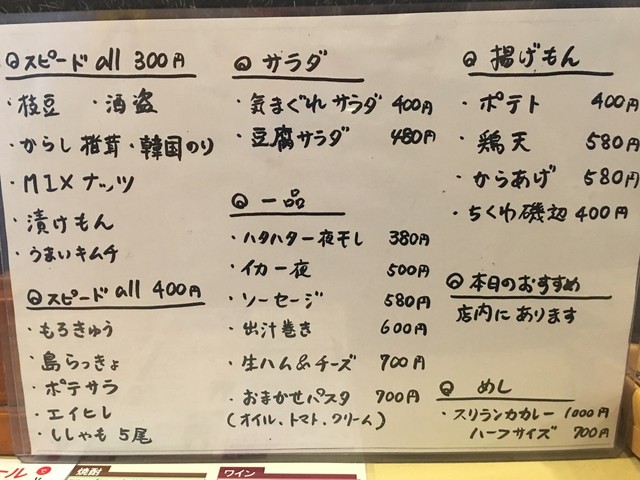 スピード all 300円
・枝豆 ・酒盗
・からし椎茸・韓国のり
・MIXナッツ
・漬けもん
・うまいキムチ
スピード all 400円
・もろきゅう
・島らっきょ
・ポテサラ
・エイヒレ
・ししゃも 5尾
サラダ
・気まぐれサラダ 400円
・豆腐サラダ 480円
一品
・ハタハタ一夜干し 380円
・イカ一夜 500円
・ソーセージ 580円
・出汁巻き 600円
・生ハム&チーズ 700円
・おまかせパスタ 700円
(オイル、トマト、クリーム)
揚げもん
・ポテト 400円
・鶏天 580円
・からあげ 580円
・ちくわ磯辺 400円
本日のおすすめ
店内にあります
めし
・スリランカカレー 1000円
ハーフサイズ 700円
ール
焼酎
ワイン